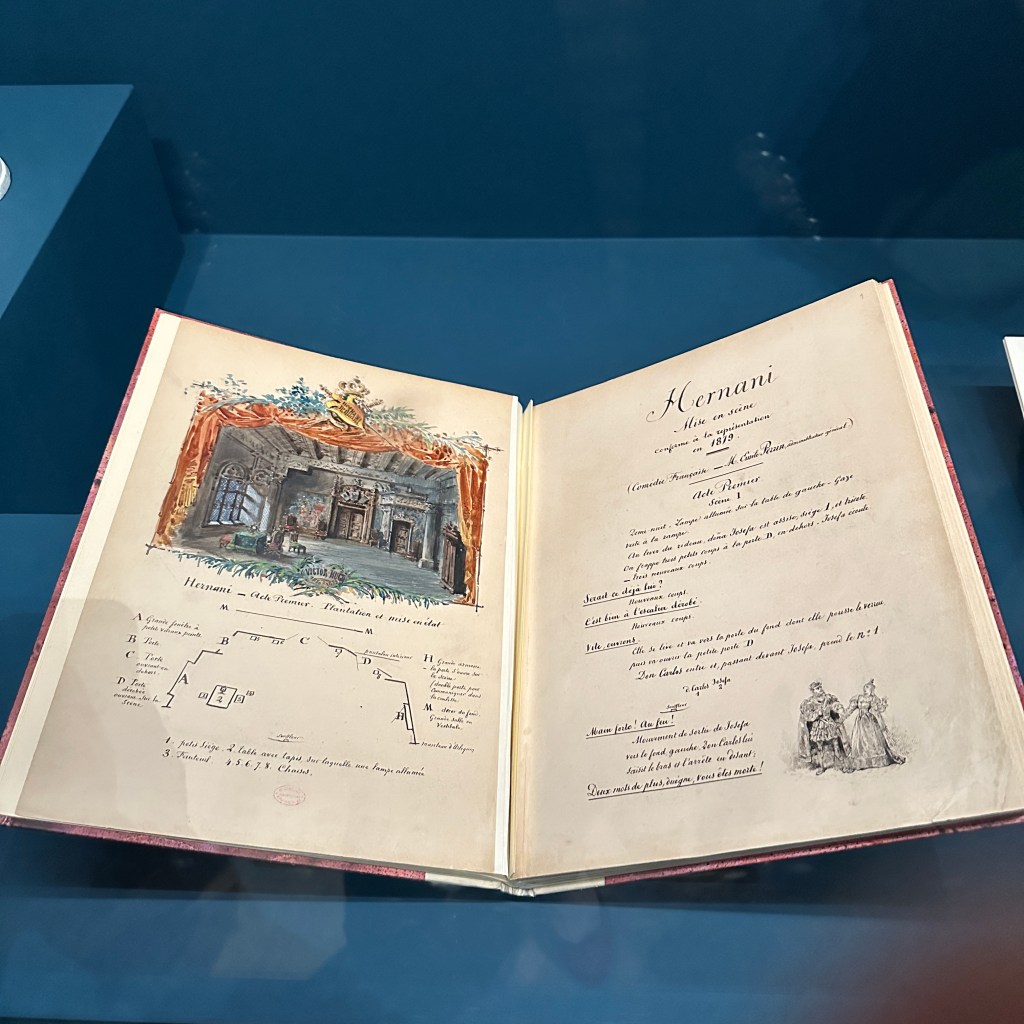 HERNANI
VICTOR HUGO
Hernani – Acte Premier. Plantation et mise en état
M M
A Grande fenêtre à
petits vitraux peints.
B Porte
C Porte
ouvrant en
dehors.
D Porte
dérobée
ouvrant sur la
Scène.
B C
D
A
H
H Grande armoire
la porte s'ouvre sur
la Scène.
(double porte pour
communiquer dans
la coulisse.
M décor du fond.
Grande salle ou
Vestibule.
manteau d'Arlequin
Souffleur
1. petit Siège. 2. table avec tapis, sur laquelle une lampe allumée
3 Fauteuil 4.5.6.7.8. Chaises.
Hernani
Mise en scène
conforme à la représentation
en 1879.
(Comédie Française – M. Emile Perrin administrateur général)
Acte Premier
Scène I
Demi-nuit – Lampe allumée sur la table de gauche – Gaze
verte à la rampe.
Au lever du rideau, doña Josefa est assise, siège 1, et tricote.
On frappe trois petits coups à la porte D, en dehors. Josefa écoute
– trois nouveaux coups.
Serait ce déjà lui?
Nouveaux coups.
C'est bien à l'escalier dérobé.
Nouveaux coups.
Vite, ouvrons.
Elle se lève et va vers la porte du fond dont elle pousse le verrou
puis va ouvrir la petite porte D
Don Carlos entre et, passant devant Josefa, prend le No 1
d. Carlos Josefa
1 2
Souffleur
Main forte! Au feu!
Mouvement de sortie de Josefa
vers le fond, gauche. Don Carlos lui
saisit le bras et l'arrête en disant:
Deux mots de plus, duègne, vous êtes morte!